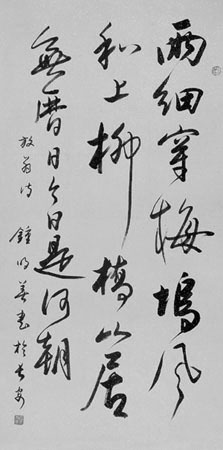 雨细穿梅坞风
和上柳桥山居
无历日今日是何朝
放翁诗 钟明善书于长安